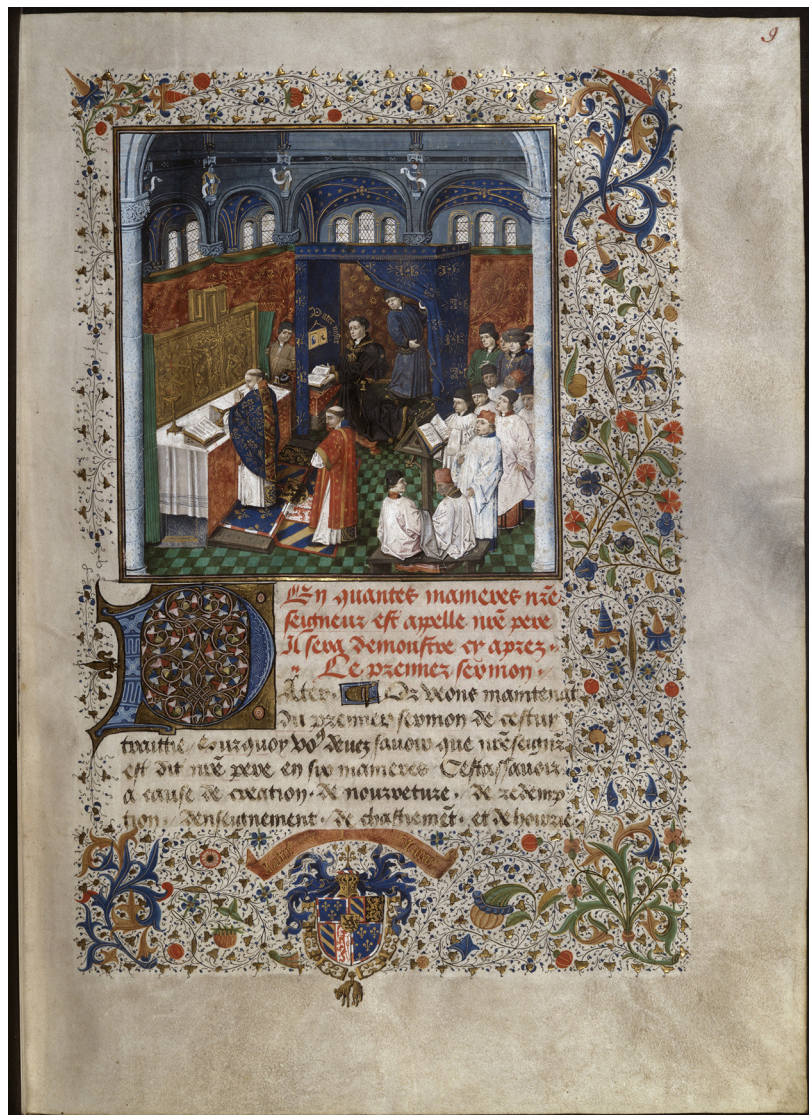 9
Pater noster
En quantes manieres nr̃e
seigneur est apelle nr̃e pere
Il sera demonstre cy aprez.
Le premier sermon.
PAter. Or veons maintenāt
du premier sermon de cestuy
traittie / Pourquoy voꝰ devez savoir que nr̃e seignr̃
est dit nr̃e pere en six manieres / C'estassavoir.
a cause de creation. de nourreture / de redemp
tion / denseignement / de chastiemēt. et de hoirrie